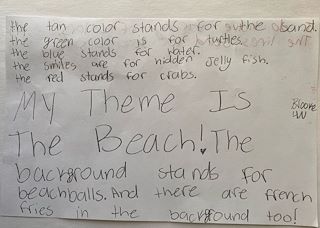 the tan color stands for the sand.
the green color is for turtles.
the blue stands for water.
the smiles are for hidden Jelly fish.
the red stands for crabs.
My Theme Is
The Beach! The
background stands for
beachballs. And there are french
fries in the background too!